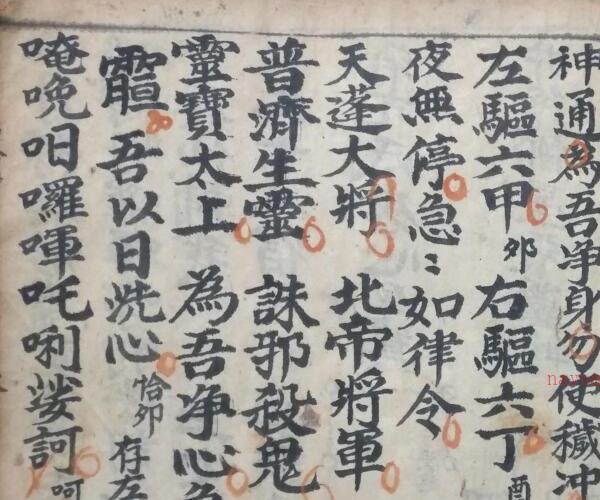 神通為吾净身勿使穢冲
左驅六甲卯右驅六丁酉
夜無停急〻如律令
天蓬大將北帝將軍
普濟生靈誅邪殺鬼
靈寶太上為吾净心
吾以日洗心恰卯存左
唵晚咱囉㖮吒唎娑訶呵